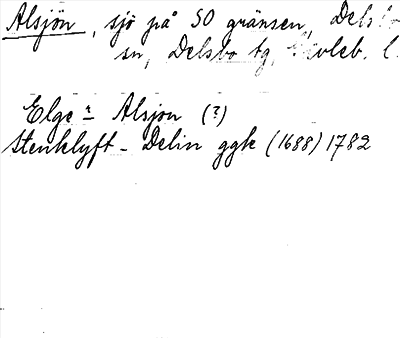 Alsjön, sjö på SO gränsen, Delsbo
sn, Delsbo tg, Gävleb. l.
Elge = Alsjon (?)
Stenklyft - Delin ggk (1688) 1782